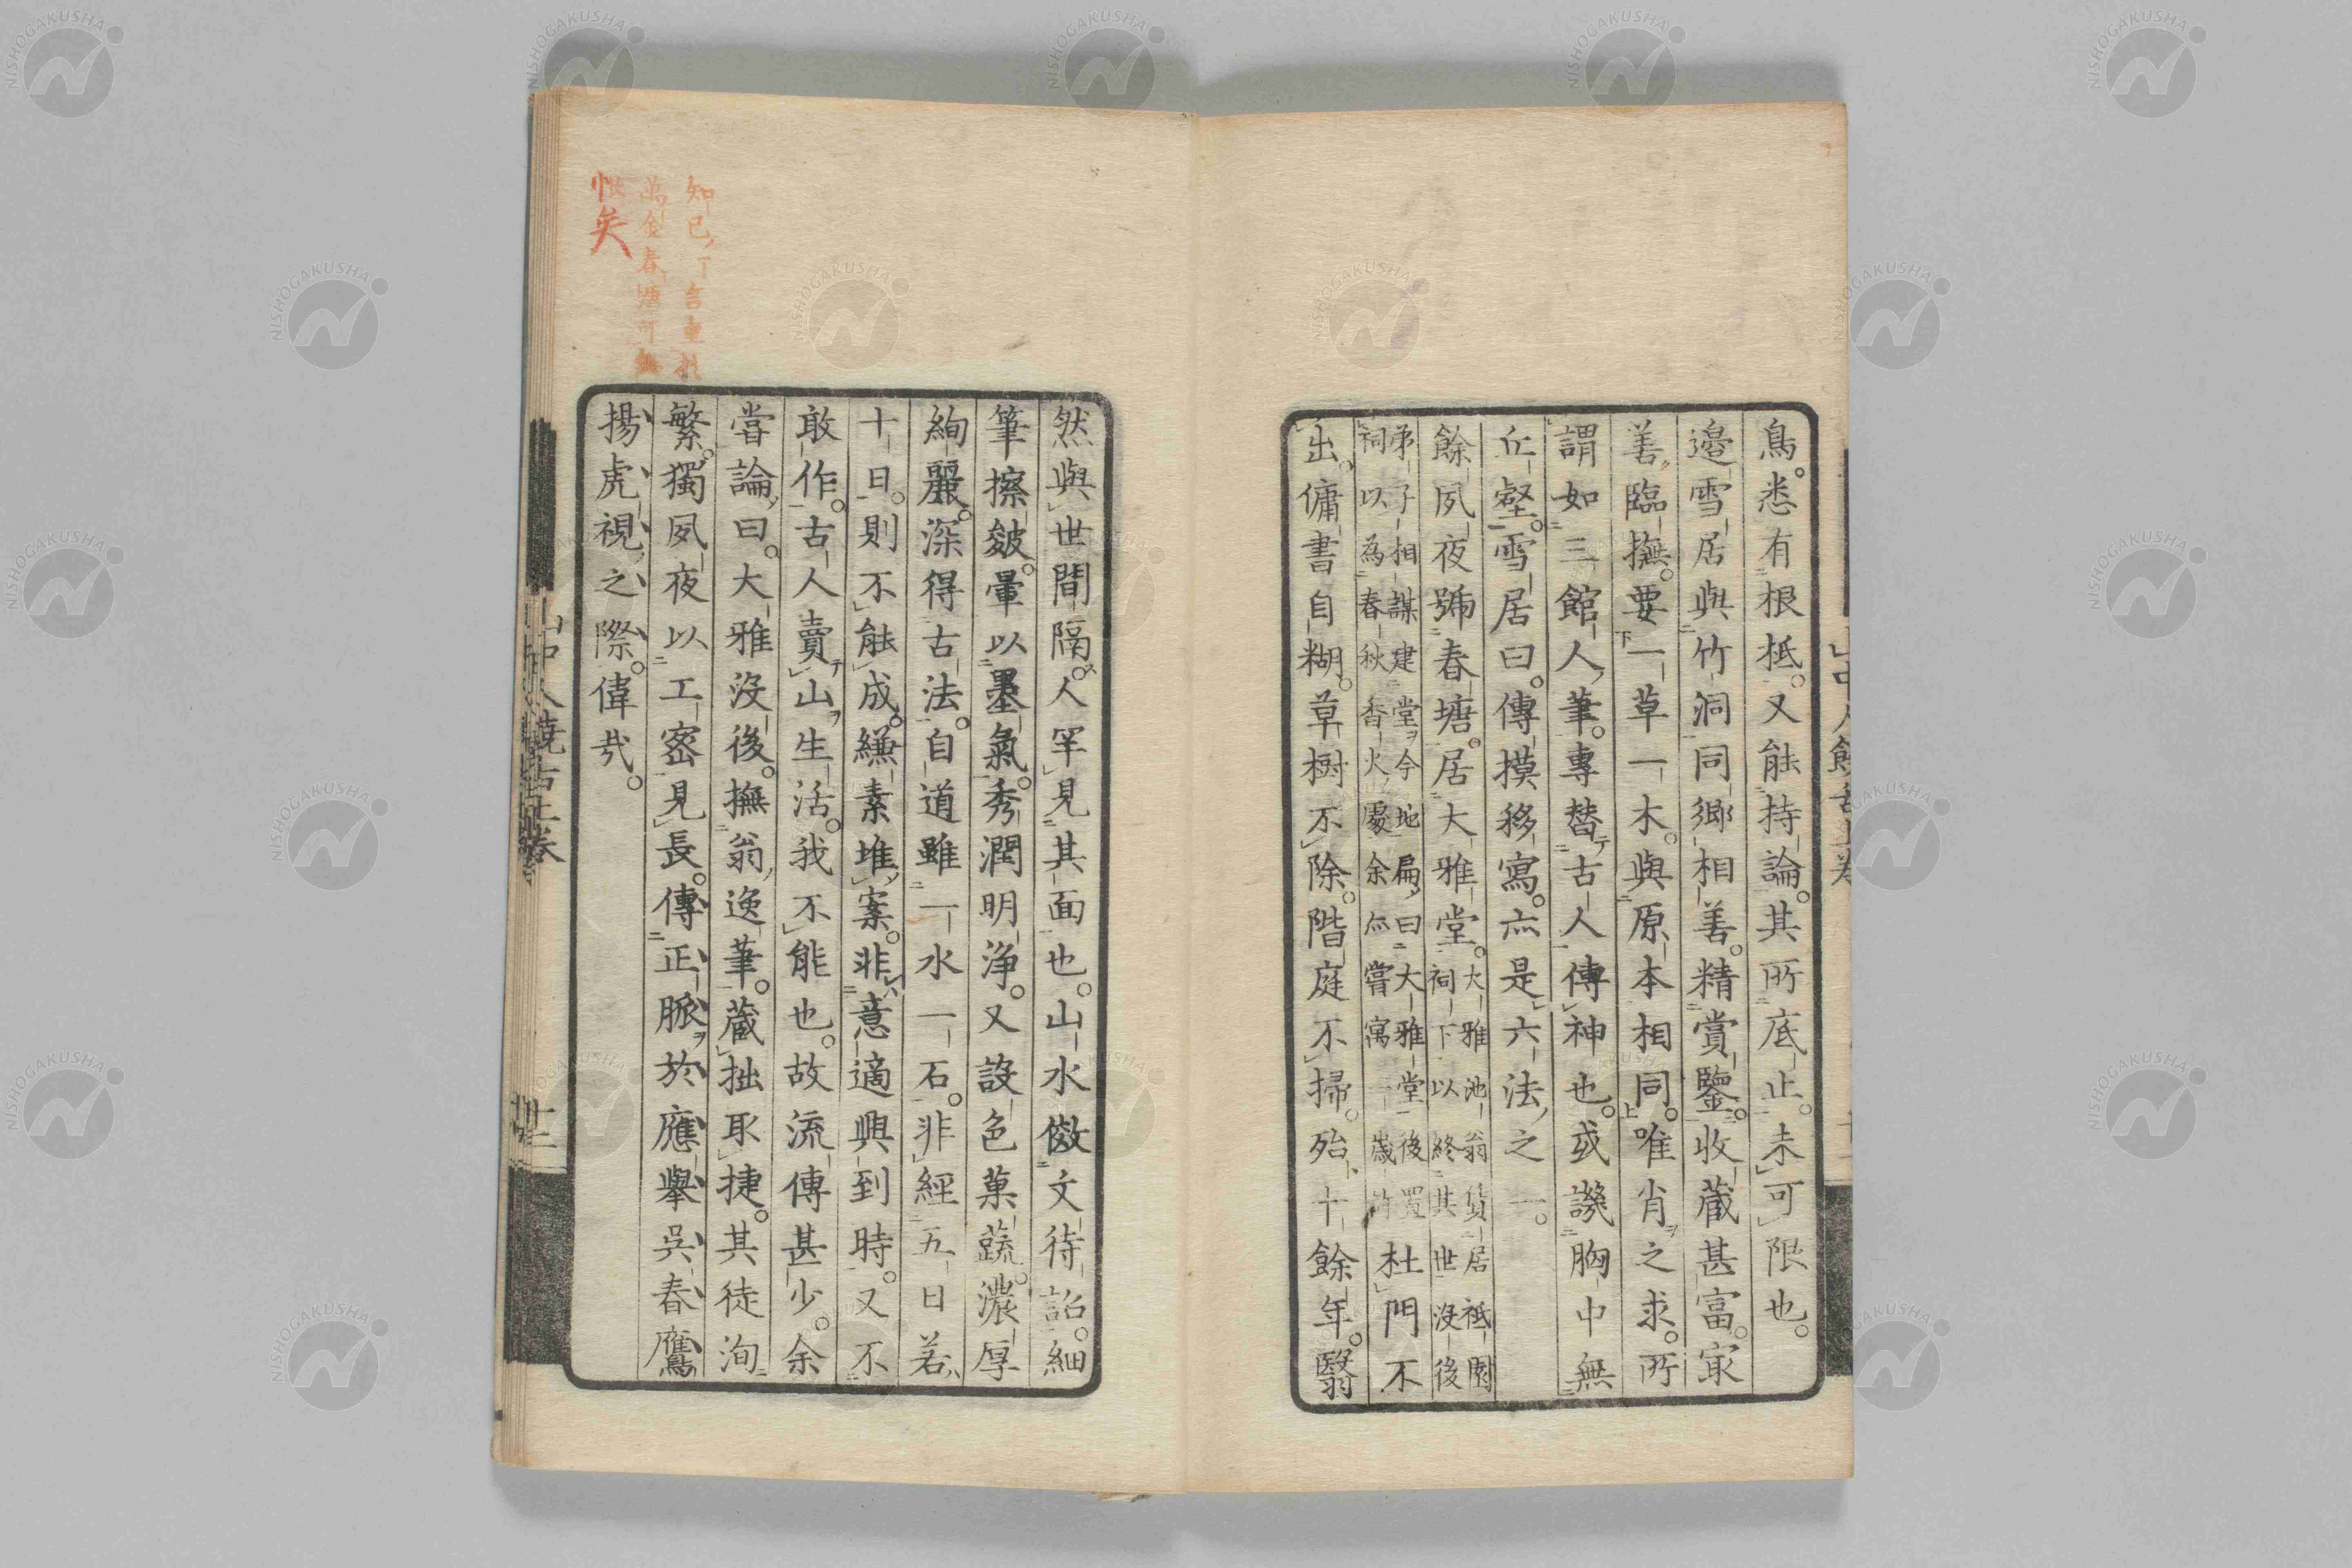 鳥。悉有根柢。又能持論。其所底止。未可限也。
邉雪居與竹洞同鄉相善。精賞鑒。收藏甚富。㝡
善臨撫。要一草一木。與原本相同。唯肖之求。所
謂如三館人筆。專替古人傳神也。或譏胸中無
丘壑。雪居曰。傳摸移寫。亦是六法之一。
餘夙夜號春塘。居大雅堂。大雅池翁貨居祇園
祠下以終其世沒後
弟子相謀建堂今地扁曰大雅堂後置
祠以為春秋香火處余亦嘗寓一歲
杜門不
出。傭書自糊。草樹不除。階庭不掃。殆十餘年。翳
然與世間隔。人罕見其面也。山水倣文待詔。細
筆擦皴。暈以墨氣。秀潤明淨。又設色菓蔬。濃厚
絢麗。深得古法。自道雖一水一石。非經五日若
十日。則不能成。縑素堆案。非意適興到時。又不
敢作。古人賣山生活。我不能也。故流傳甚少。余
嘗論曰。大雅沒後。撫翁逸筆。藏拙取捷。其徒洵
繁。獨夙夜以工密見長。傳正脈於應舉吳春鷹
揚虎視之際。偉哉。
知已了言重於
萬金春塘可無
恨矣
山中人饒舌上卷
NISHOGAKUSHA